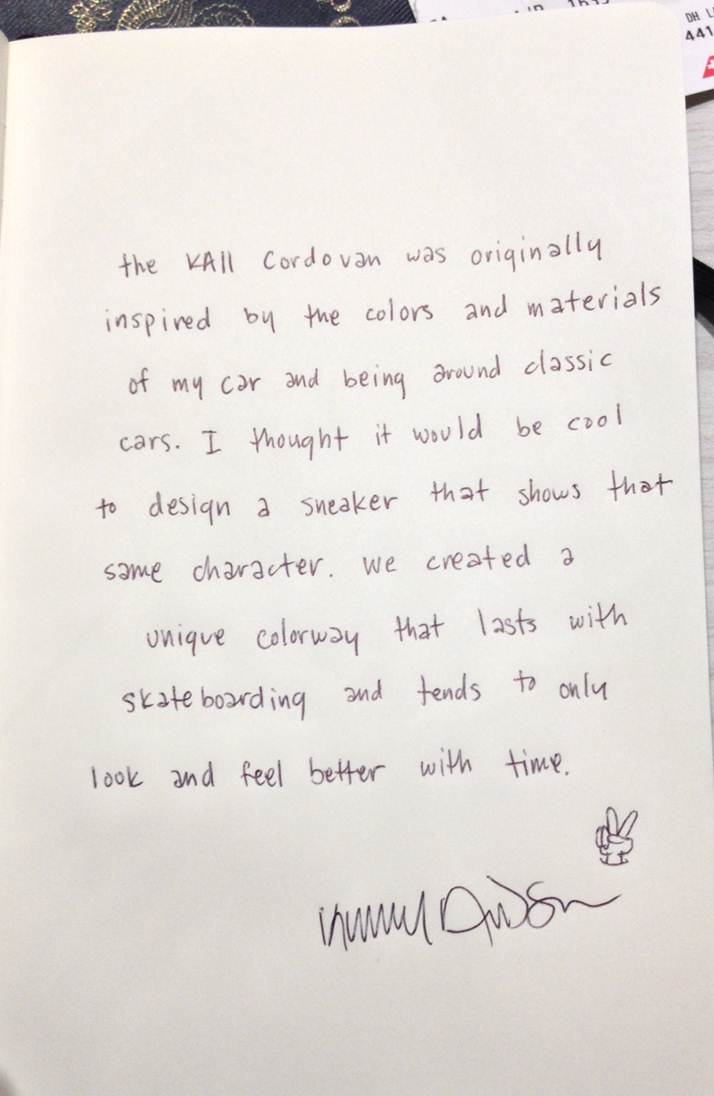 DH L
441
the KA11 Cordovan was originally
inspired by the colors and materials
of my car and being around classic
cars. I thought it would be cool
to design a sneaker that shows that
same character. we created a
unique colorway that lasts with
skateboarding and tends to only
look and feel better with time.